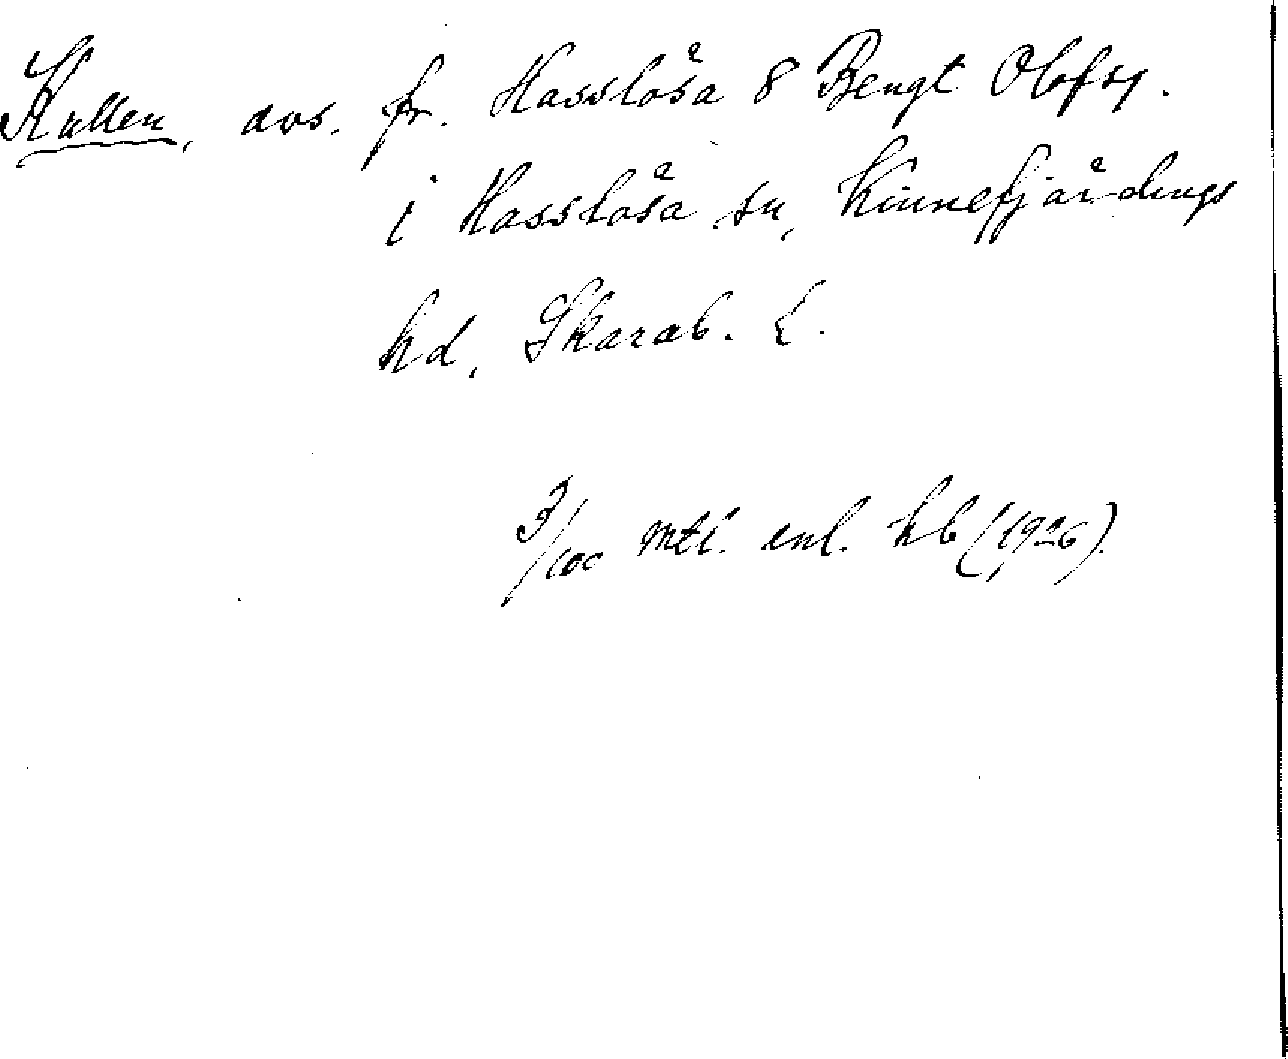 Kullen, avs. fr. Hasslösa 8 Bengt Olofsg.
i Hasslösa sn, Kinnefjärdings
hd, Skarab. L.
3/100 mtl. enl. hb (1926).